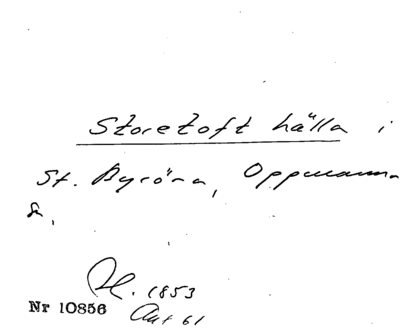 Storetoft hälla i
St. Byröra, Oppmanna
sn.
H. 1853
Nr 10856 Aut 61